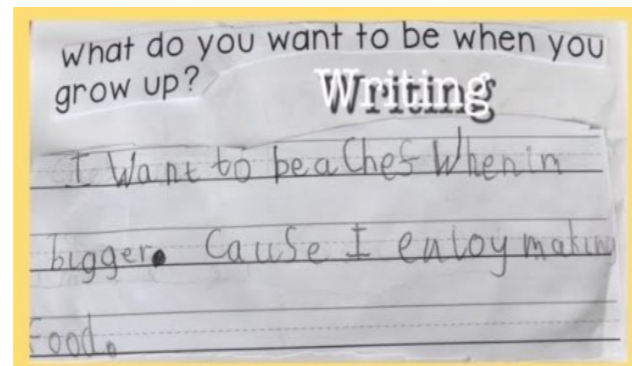 What do you want to be when you
grow up?
Writing
I Want to be a Chef When im
bigger. Cause I enloy making
Food.